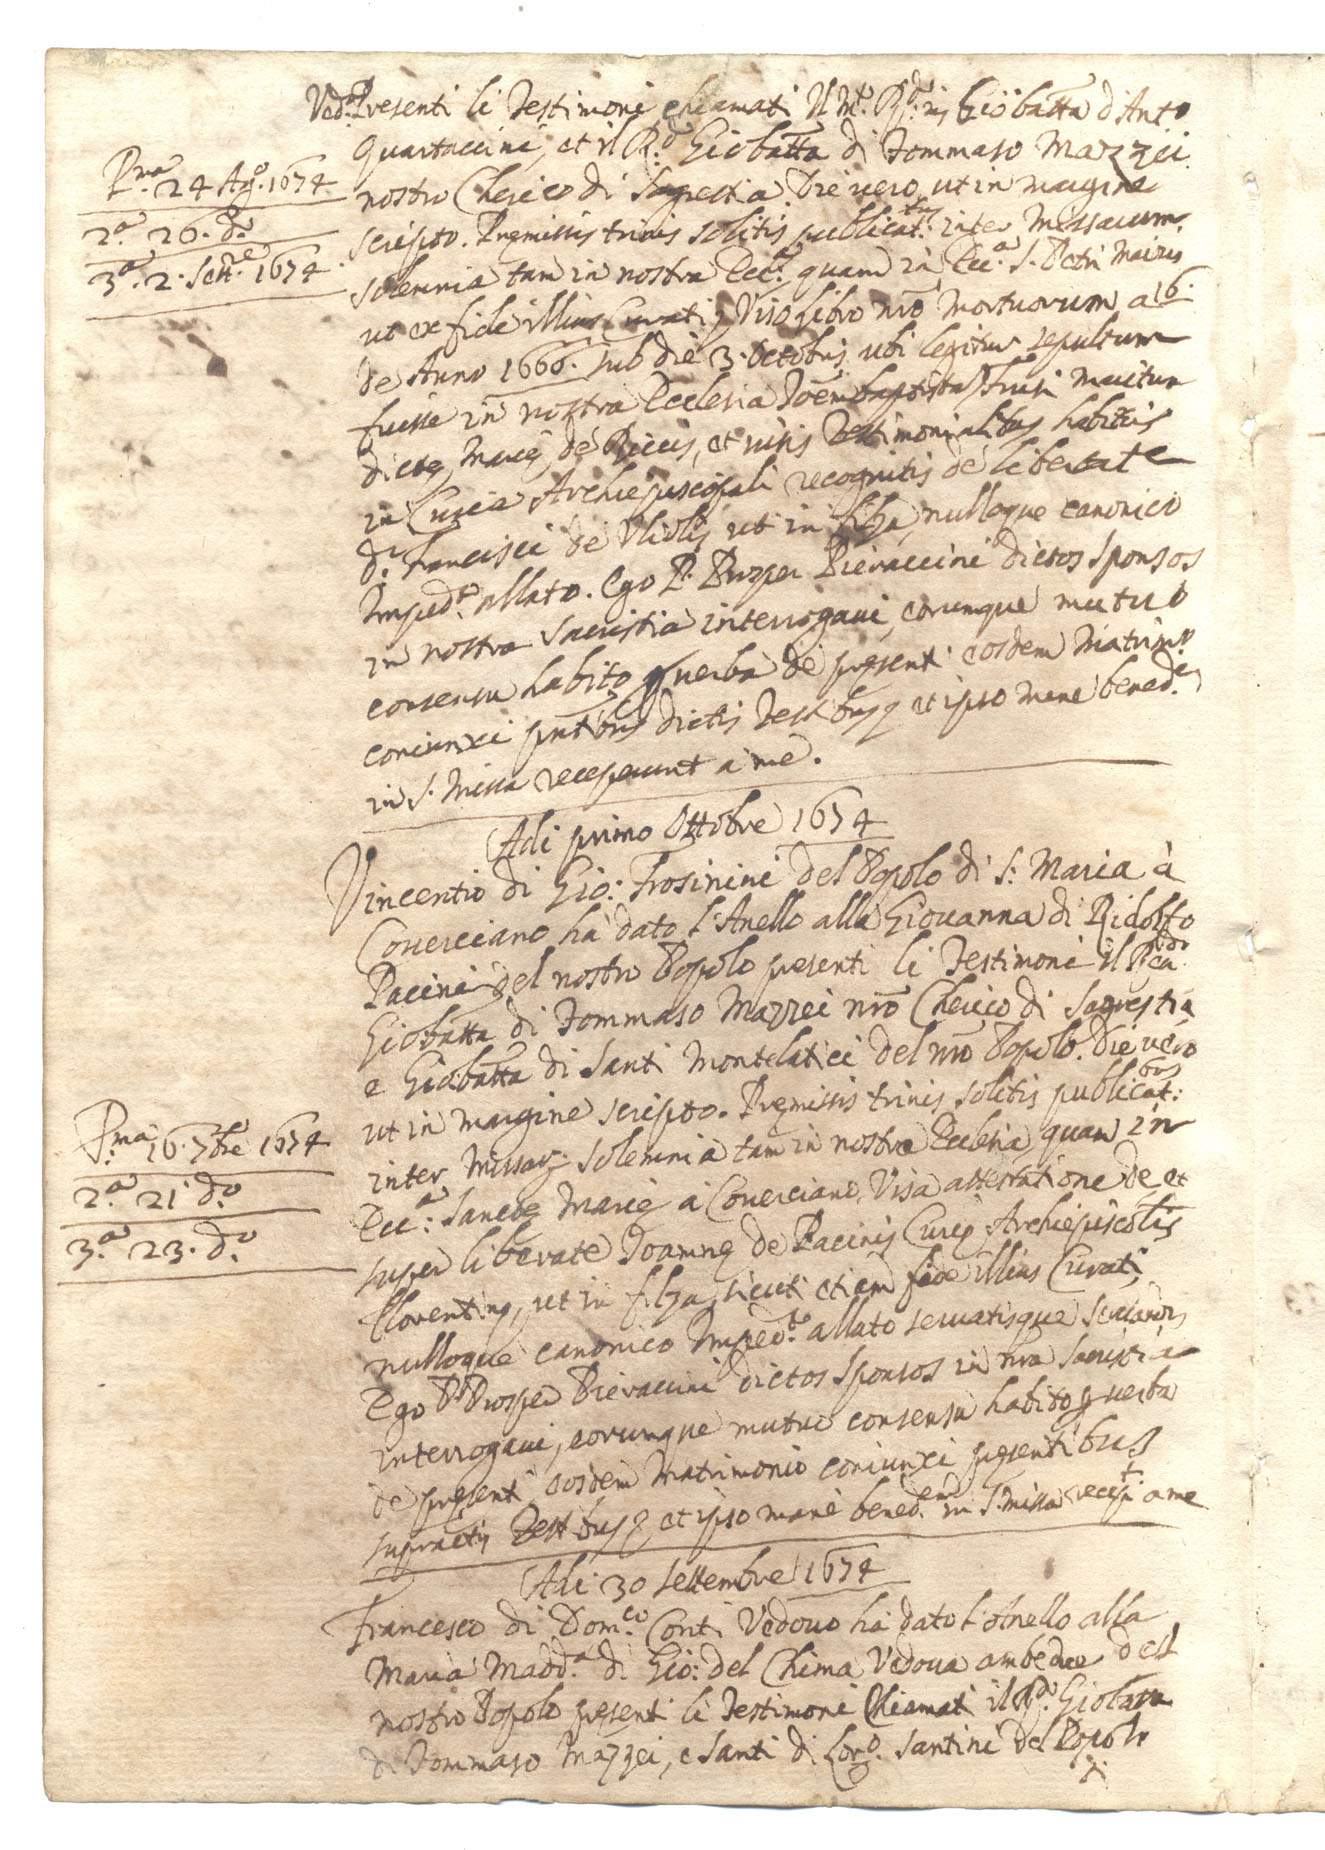 Ved.ª Presenti li Testimoni chiamati Il M.to R.do Giobatta d'Ant.o
Quartaccini, et il R.do Giobatta di Tommaso Mazzei
nostro Cherico di Sagrestia. Die vero, ut in margine
P.ma 24 Ag.o 1674
2.a 26. d.o
3.a 2. Sett.e 1674
scripto. Premissis trinis solitis publicat.bus inter Missarum
solemnia tam in nostra Ecc.a, quam in Ecc.a S. Petri Maioris
ut ex fide illius Curati, Viso libro nro Mortuorum a 6.
de Anno 1666. sub die 3. Octobris, ubi legitur sepultum
fuisse in nostra Ecclesia Joem baptista maritum
dictę Marię de Riccis, et visis Testimonialibus habitis
in Curia Archiepiscopali recognitis de libertate
d.i Francisci de Uliolis, ut in filza, nulloque canonico
Imped.to allato. Ego P. Prosper Pieraccini dictos Sponsos
in nostra Sacristia interrogavi, eorumque mutuo
consensu habito p verba de pręsenti eosdem Matrim.o
coniunxi pntibus dictis Testibus, et ipso mane bened.em
in S. Missa receperunt a me.
Adi primo Ottobre 1674
Vincentio di Gio: Frosinini del Popolo di S: Maria à
Coverciano ha dato l'Anello alla Giovanna di Ridolfo
Pacini del nostro Popolo presenti li Testimoni il R.do
Giobatta di Tommaso Mazzei nro Cherico di Sagrestia
e Giobatta di Santi Montelatici del nro Popolo. Die vero
ut in margine scripto. Pręmissis trinis solitis publicat:bus
P.ma 16. 7bre 1674
2.a 21 d.o
3.a 23. d.o
inter Missar. solemnia tam in nostra Ecclesia, quam in
Ecc.a: Sanctę Marię a Coverciano, Visa attestatione de, et
super libertate Joannę de Pacinis Curię Archiepiscolis
Florentinę, ut in filza, sicuti etiam fide illius Curati,
nulloque canonico Imped.to allato servatisque servandis
Ego P. Prosper Pieraccini dictos Sponsos in nra Sacristia
interrogavi, eorumque mutuo consensu habito p verba
de pręsenti eosdem Matrimonio coniunxi pręsentibus
supractis Testibus, et ipso mane bened.em in S. Missa recep.t a me
Adi 30 Settembre 1674
Francesco di Dom.co Conti Vedovo ha dato l'Anello alla
Maria Madd.a di Gio: del Chima Vedova ambedue del
nostro Popolo pręsenti li Testimoni Chiamati il R.do Giobatta
di Tommaso Mazzei, e Santi di Lor.o Santini del Popolo
di